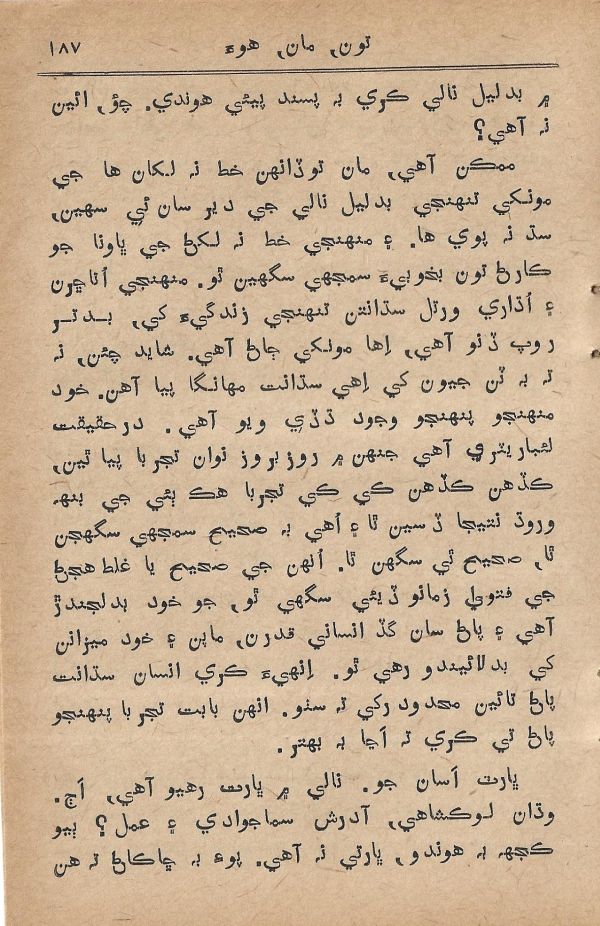 تون, مان, هوءَ ١٨٧
۾ بدليل نالي ڪري به پسند پيئي هوندي. چؤ, ائين
نه آهي؟
ممڪن آهي, مان توڏانهن خط نه لکان ها جي
مونکي تنهنجي بدليل نالي جي دير سان ئي سهين,
سڌ نه پوي ها. ۽ منهنجي خط نه لکڻ جي ڀاونا جو
ڪارڻ تون بخوبيءَ سمجهي سگهين ٿو. منهنجي اُناڇرن
۽ اُڌاري ورتل سڌانتن تنهنجي زندگيءَ کي, بدتر
روپ ڏنو آهي, اِها مونکي ڄاڻ آهي. شايد چئن, نه
ته به ٽن جيون کي اِهي سڌانت مهانگا پيا آهن. خود
منهنجو پنهنجو وجود ڌڏي ويو آهي. درحقيقت
لئباريٽري آهي جنهن ۾ روزبروز نوان تجربا پيا ٿين,
ڪڏهن ڪڏهن ڪي ڪي تجربا هڪ ٻئي جي بنهه
وروڌ نتيجا ڏسين ٿا ۽ اُهي به صحيح سمجهي سگهجن
ٿا, صحيح ٿي سگهن ٿا. اُنهن جي صحيح يا غلط هجڻ
جي فتويٰ زمانو ڏيئي سگهي ٿو, جو خود بدلجندڙ
آهي ۽ پاڻ سان گڏ انساني قدرن, ماپن ۽ خود ميزانن
کي بدلائيندو رهي ٿو. اِنهيءَ ڪري انسان سڌانت
پاڻ تائين محدود رکي ته سٺو. انهن بابت تجربا پنهنجو
پاڻ تي ڪري ته اَڃا به بهتر.
ڀارت اَسان جو. نالي ۾ ڀارت رهيو آهي, اَڄ.
وڌان لوڪشاهي, آدرش سماجوادي ۽ عمل؟ ٻيو
ڪجهه به هوندو, ڀارتي نه آهي. پوءِ به ڇاڪاڻ ته هن